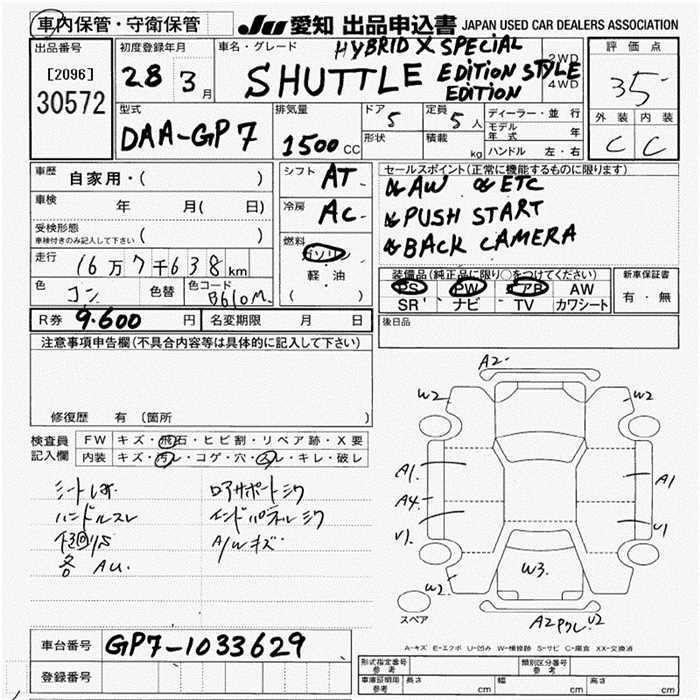 車内保管・守衛保管
JU 愛知 出品申込書 JAPAN USED CAR DEALERS ASSOCIATION
出品番号
[2096]
30572
初度登録年月
28 3月
車名・グレード
HYBRID X SPECIAL
SHUTTLE EDITION STYLE
EDITION
2WD
4WD
評価点
35
外装 内装
C C
型式
DAA-GP7
排気量
1500 CC
ドア 5
形状
定員 5人
積載 kg
ディーラー・並行
モデル年式 年
ハンドル 左・右
車歴 自家用・( )
車検 年 月( 日)
受検形態
車検付きのみ記入して下さい ( )
走行 16万7千638km
色 コン 色替 色コード B610M
シフト AT
冷房 AC
燃料 ガソリン
軽油
( )
セールスポイント(正常に機能するものに限ります)
AW ETC
PUSH START
BACK CAMERA
装備品(純正品に限り○をつけてください)
PS PW エアB AW
SR ナビ TV カワシート
新車保証書
有・無
R券 9.600円 名変期限 月 日
後日品
注意事項申告欄(不具合内容等は具体的に記入して下さい)
修復歴 有 (箇所
検査員記入欄
FW キズ・飛石・ヒビ割・リペア跡・X要
内装 キズ・汚レ・コゲ・穴・スレ・キレ・破レ
ハンドルスレ
各 AU.
ロアサポートミク
インドパネルミク
A/Wキズ
A2
W2 W2
A1 A1
A4
U1 U1
W2 W3
A2ワレ U2
スペア
A-キズ E-エクボ U-凹み W-補修跡 S-サビ C-腐食 XX-交換済
車台番号 GP7-1033629
登録番号
形式指定番号 参考
類別区分番号 参考
車庫証明用 参考 長さ cm 幅 cm 高さ cm